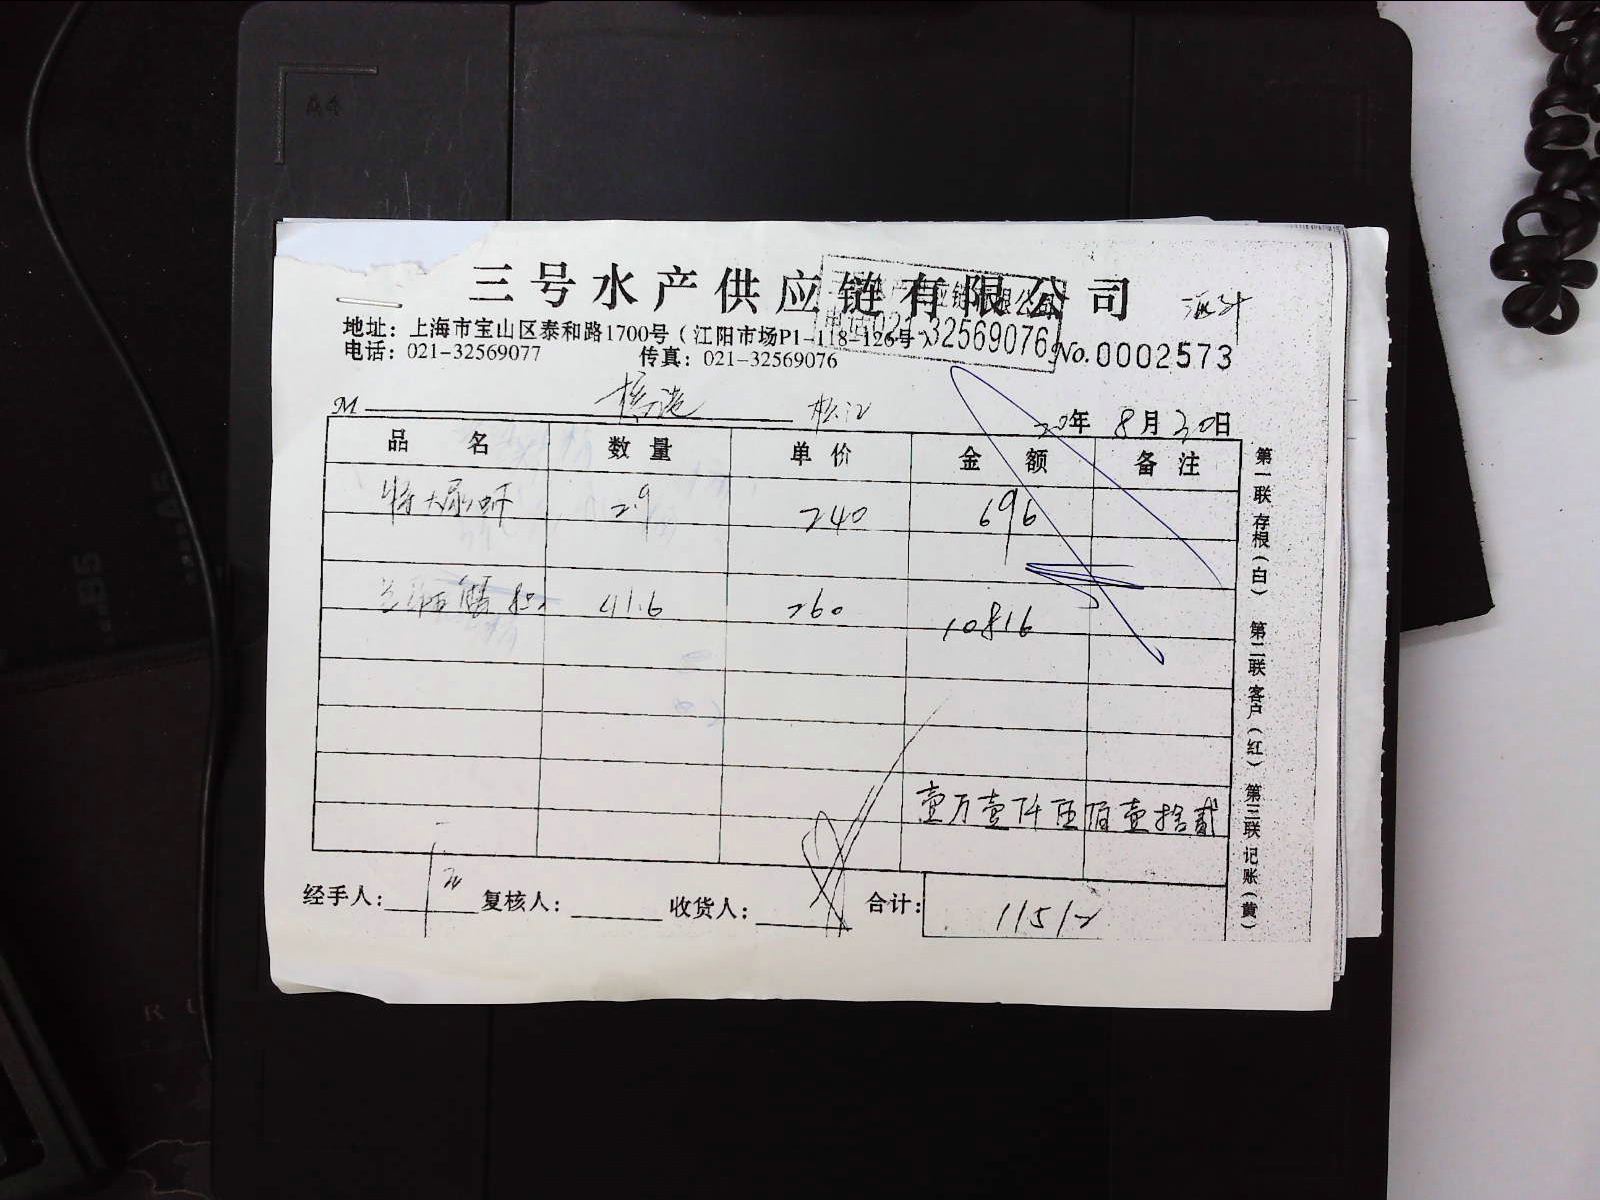 三号水产供应链有限公司
地址：上海市宝山区泰和路1700号（江阳市场P1-118-126号）
021-32569076
电话：021-32569077 传真：021-32569076 No.0002573
M 松江
20年8月30日
品名 数量 单价 金额 备注
特大尿虾 2.9 240 696
41.6 260 10816
壹万壹仟伍佰壹拾贰
经手人： 复核人： 收货人： 合计： 11512
第一联 存根（白） 第二联 客户（红） 第三联 记账（黄）
A4